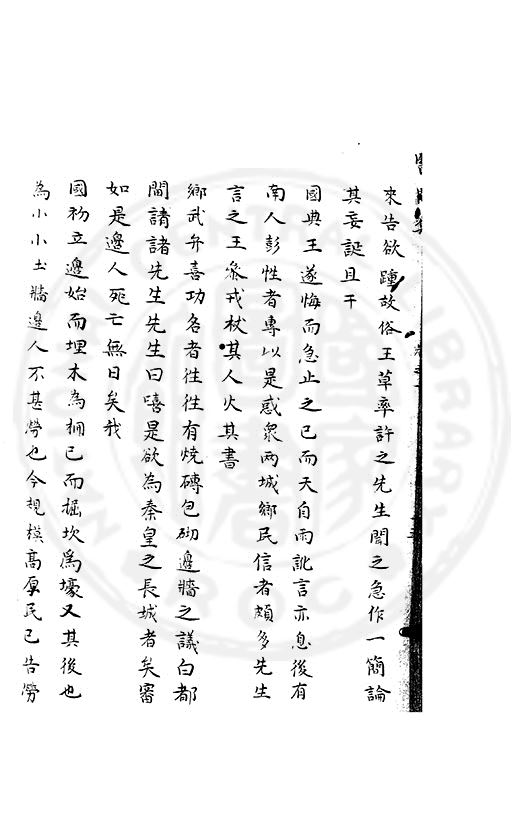 來告欲踵故俗王草率許之先生聞之急作一簡論
其妄誕且干
國典王遂悔而急止之已而天自雨訛言亦息後有
南人彭性者專以是惑衆兩城鄉民信者頗多先生
言之王叅戎杖其人火其書
鄉武弁喜功名者往往有燒磚包砌邊牆之議白都
閫請諸先生先生曰嘻是欲為秦皇之長城者矣審
如是邊人死亡無日矣我
國初立邊始而埋木為柵已而掘坎爲壕又其後也
為小小土牆邊人不甚勞也今規模高厚民已告勞